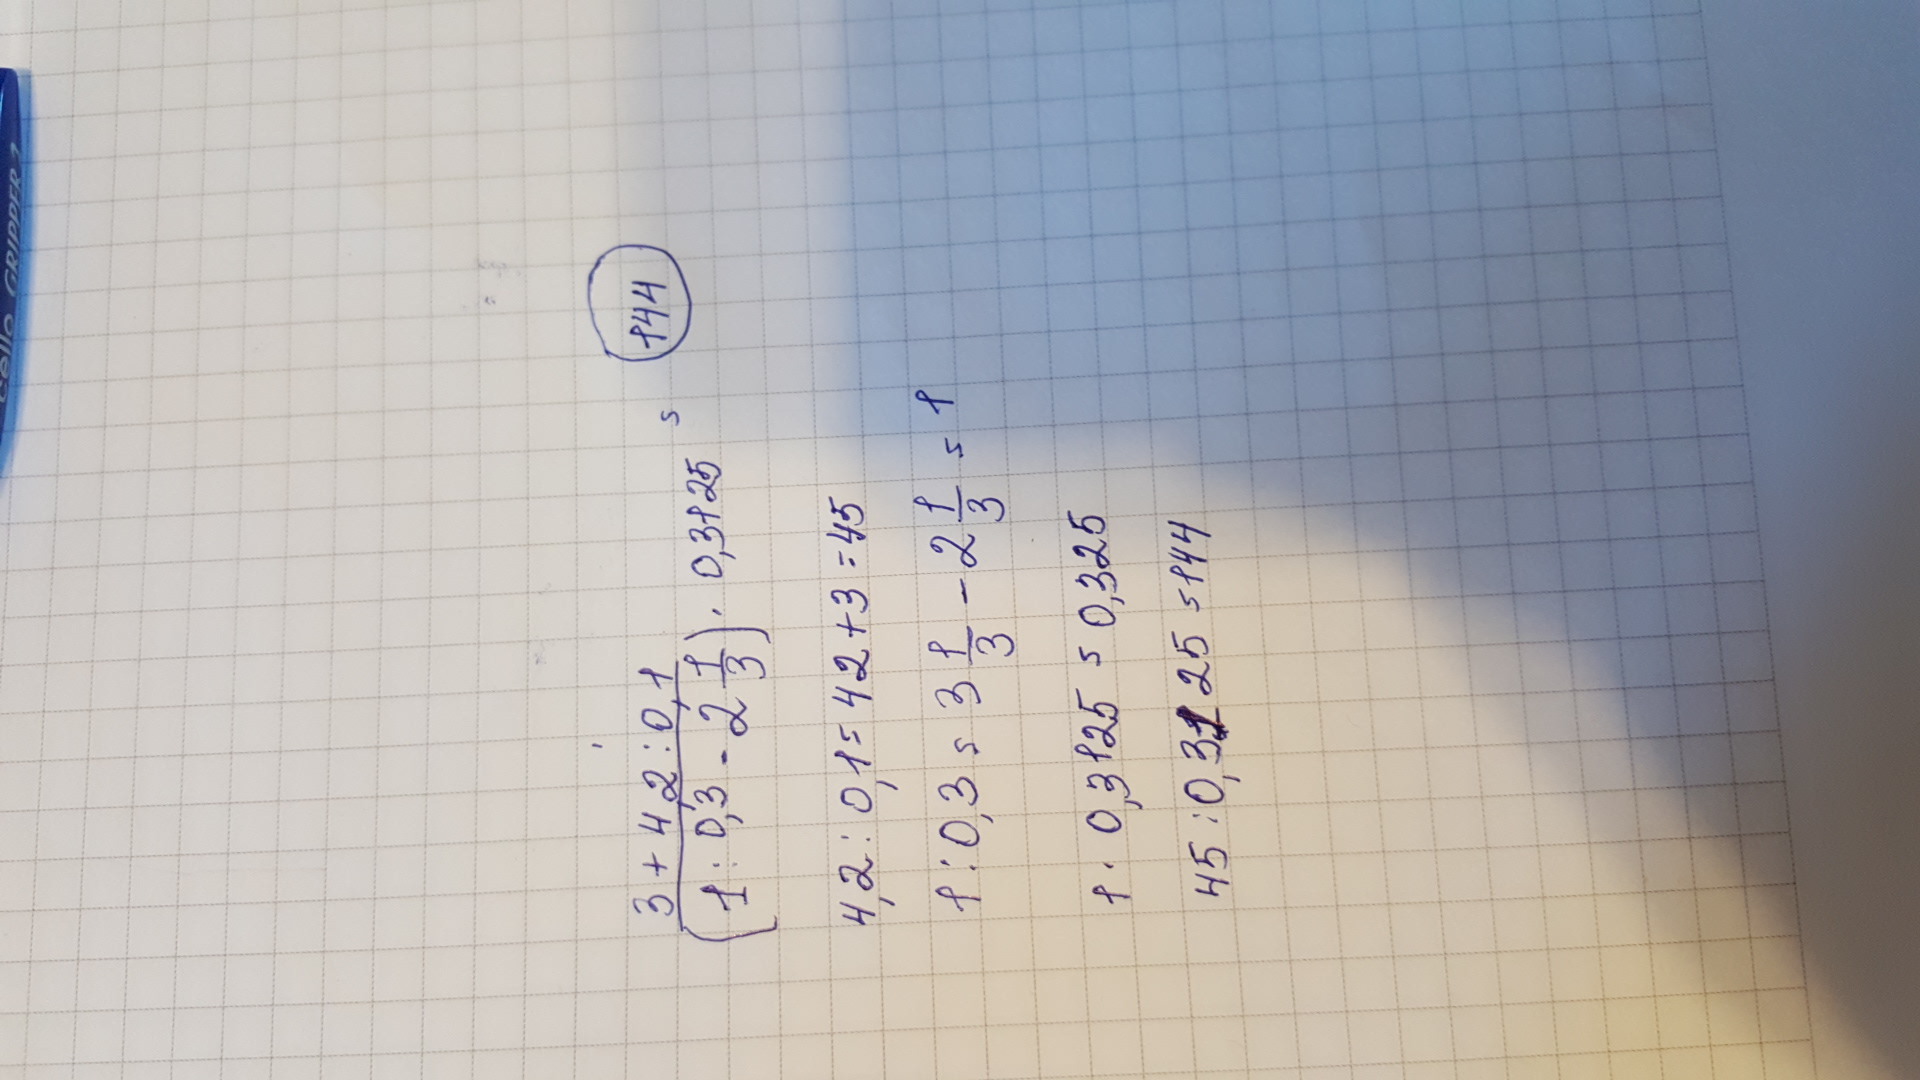 3 + 4,2 : 0,1
(1 : 0,3 - 2 1/3) · 0,3125 = 144
4,2 : 0,1 = 42 + 3 = 45
1 : 0,3 = 3 1/3 - 2 1/3 = 1
1 · 0,3125 = 0,325
45 : 0,3125 = 144
cello GRIPPER